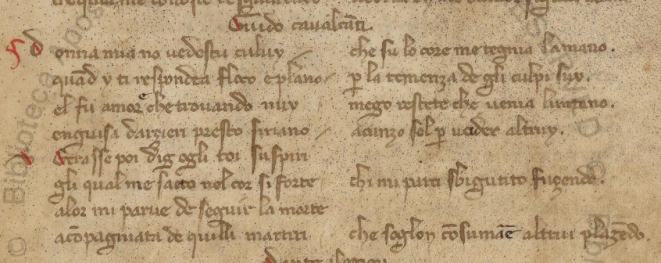 Guido caualcāti.
Donna mia no uedestu culuy / che su lo core me tegnia la mano.
quād y ti respondea floco e plano / p la temenza de gli culpi suy.
el fu amor che trouando nuy / mego restete che uenia lontano.
enguisa darcier presto siriano / acunzo sol p ucider altruy.
trasse poi dig ogli toi suspiri
gli qual me saeto nel cor si forte chi mi parti sbigutito fuzendo.
alor mi parue de seguir la morte
acōpagniata de quilli martiri che soglon cōsumar altrui plāzēdo.